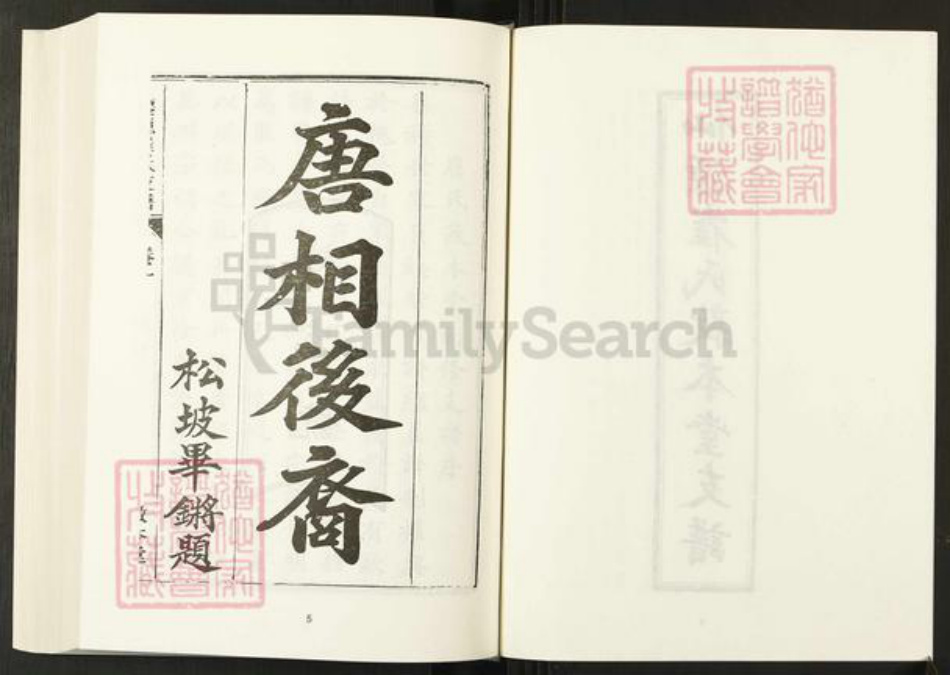 唐相後裔
松坡畢鏘題
5
猶他家
譜學會
收藏
猶他家
譜學會
收藏
FamilySearch